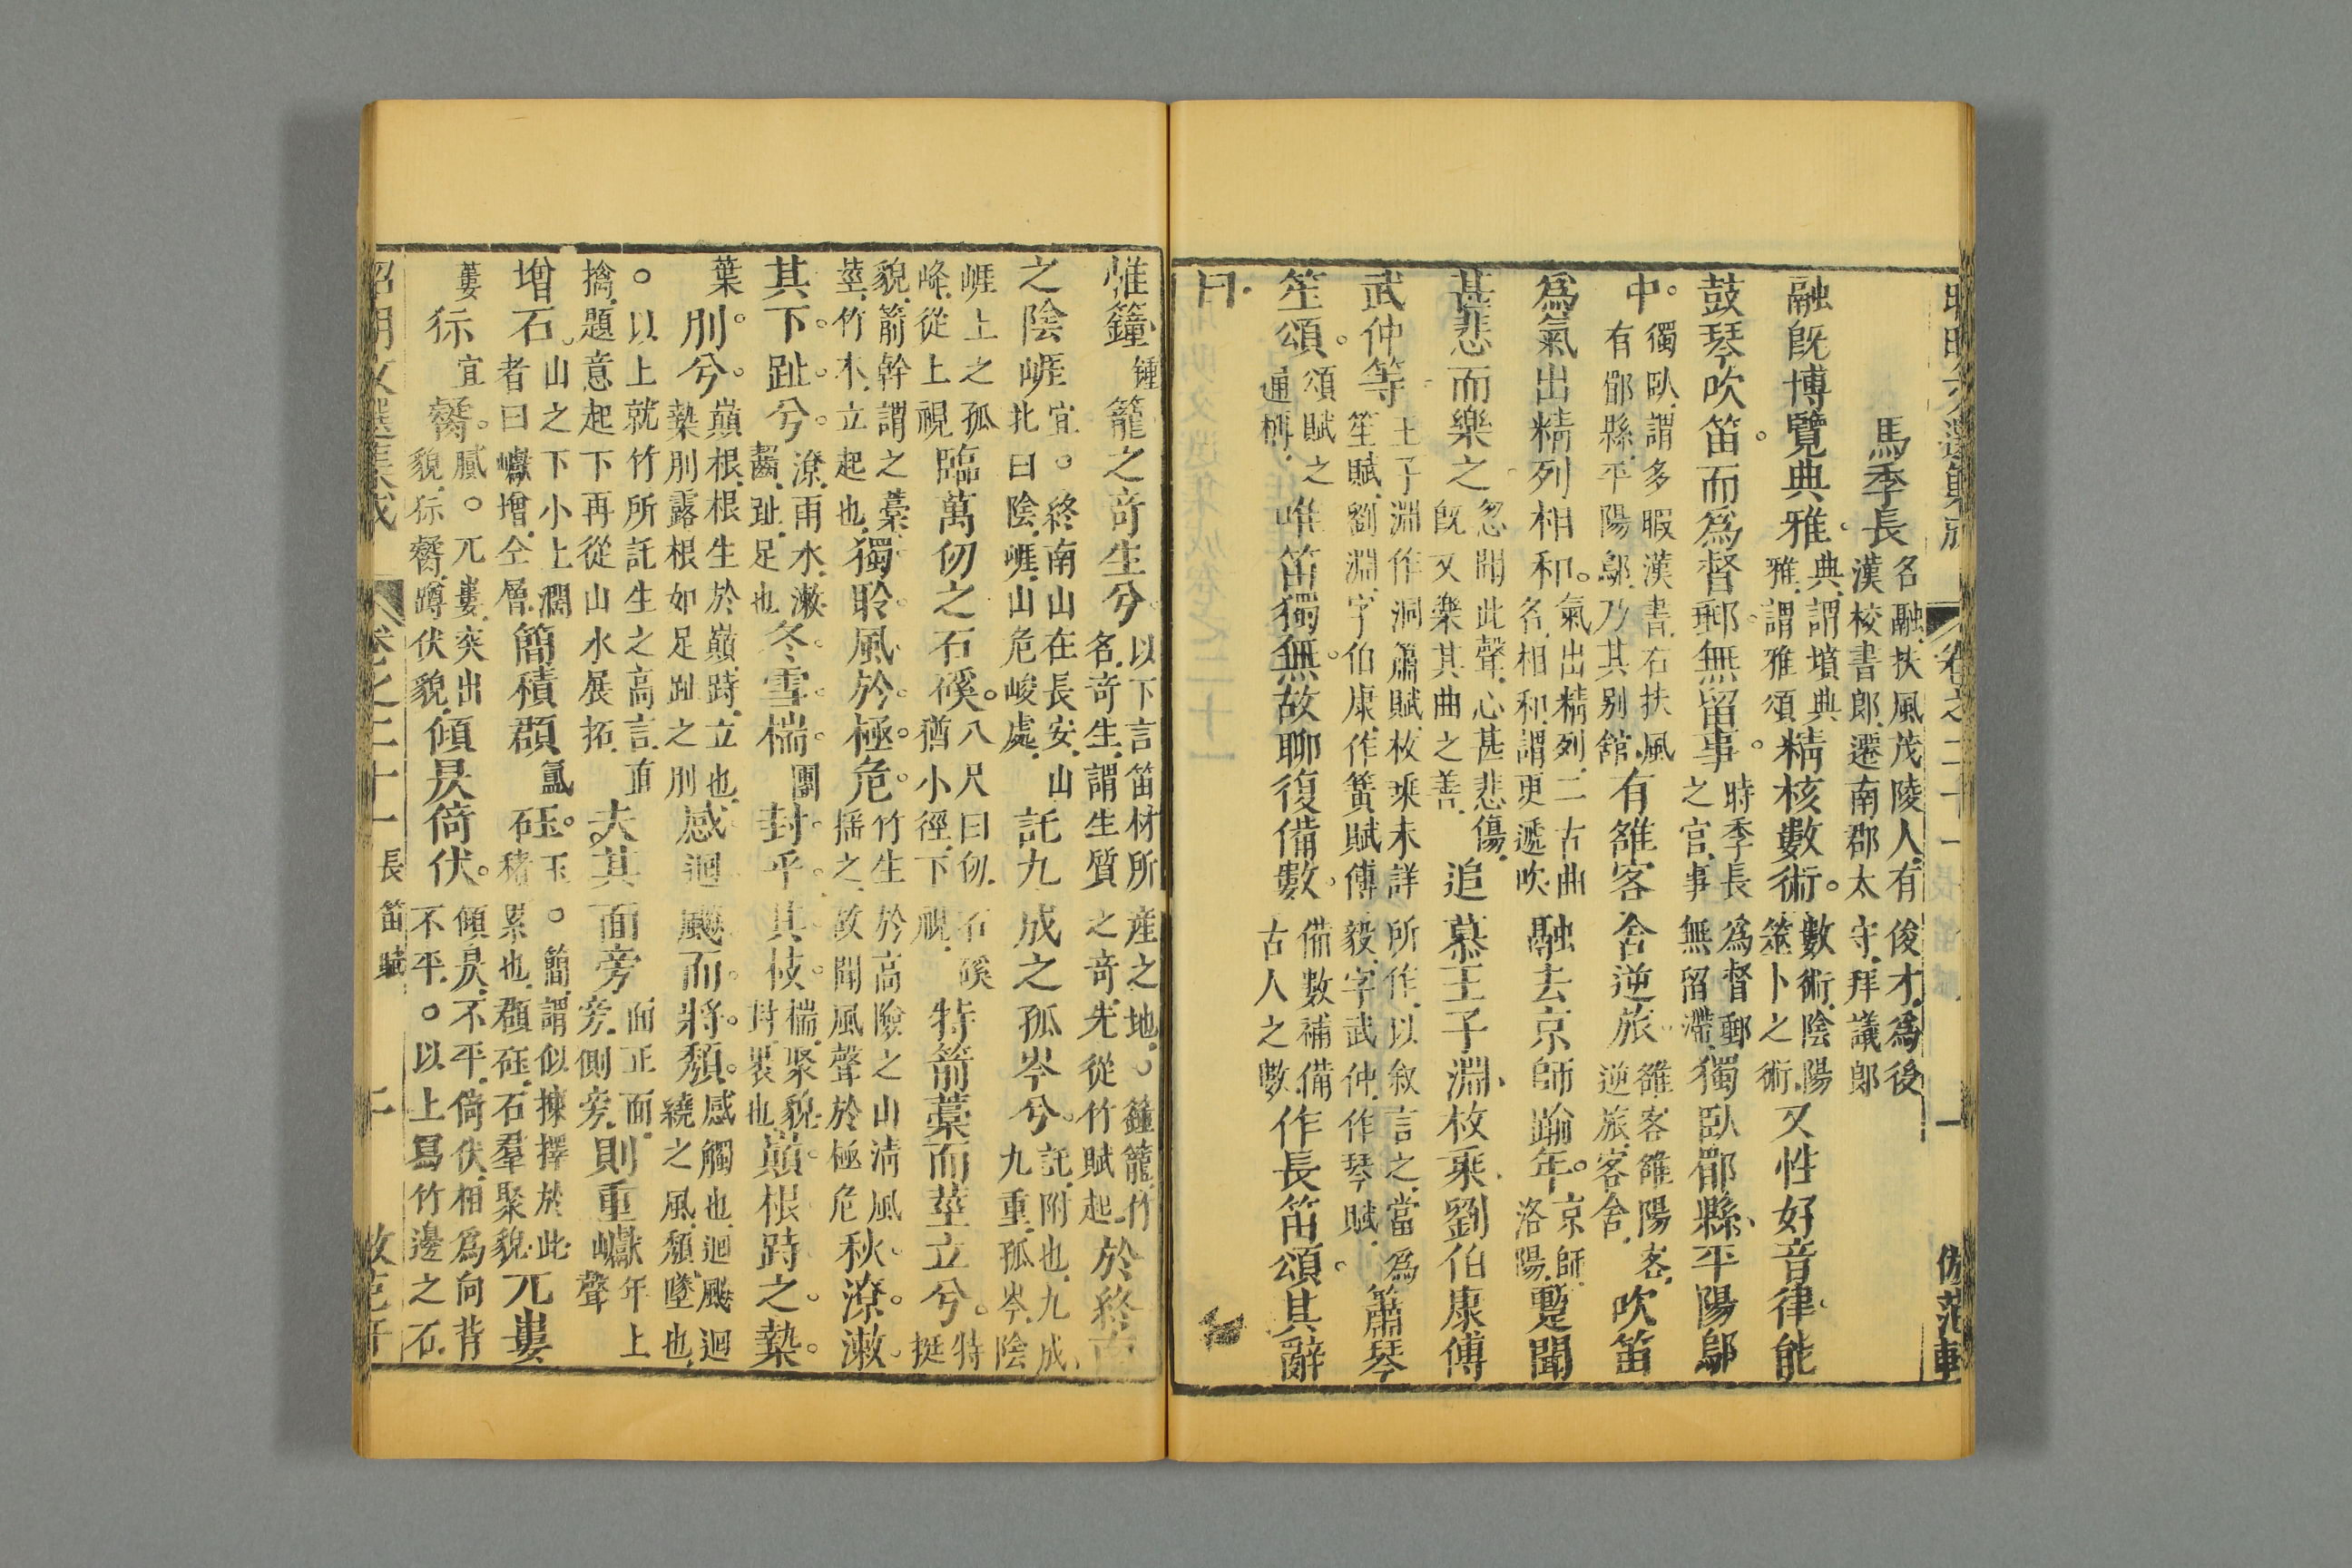 馬季長名融扶風茂陵人有俊才為後漢校書郎遷南郡太守拜議郎
融旣博覽典雅典謂墳典雅謂雅頌精核數術數術陰陽筮卜之術又性好音律能
鼓琴吹笛而爲督郵無留事時季長爲督郵之官事無留滯獨臥郿縣平陽鄔
中獨臥謂多暇漢書右扶風有郿縣平陽鄔乃其别舘有雒客舍逆旅雒客雒陽客逆旅客舍吹笛
爲氣出精列相和氣出精列二古曲名相和謂更遞吹融去京師踰年京師洛陽蹔聞
甚悲而樂之忽聞此聲心甚悲傷旣又樂其曲之善追慕王子淵枚乘劉伯康傅
武仲等王子淵作洞簫賦枚乘未詳所作以敘言之當爲笙賦劉淵字伯康作簧賦傅毅字武仲作琴賦簫琴
笙頌頌賦之通稱唯笛獨無故聊復備數備數補備古人之數作長笛頌其辭
曰
惟籦鍾籠之奇生兮以下言笛材所產之地籦籠竹名奇生謂生質之奇先從竹賦起於終南
之陰崕宜終南山在長安山北曰陰崕山危峻處託九成之孤岑兮託附也九成九重孤岑陰
崕上之孤峰從上視臨萬仞之石磎八尺曰仞石磎猶小徑下視特箭槀而莖立兮特挺
貌箭幹謂之槀莖竹木立起也獨聆風於極危竹生於高險之山清風搖之故聞風聲於極危秋潦漱
其下趾兮潦雨水漱齧趾足也冬雪揣團封乎其枝揣聚貌封裹也巔根跱之槷
葉刖兮巔根根生於巔跱立也槷刖露根如足趾之刖感迴飈而將頹感觸也迴飈迴繞之風頹墜也
以上就竹所託生之高言直擒題意起下再從山水展拓夫其面旁面正面旁側旁則重巘年上聲
增石山之下小上濶者曰巘增仝層簡積頵氲砡玉簡謂似揀擇於此積累也頵砡石羣聚貌兀婁
蔞狋宜觺膩兀婁突出貌狋觺蹲伏貌傾昃倚伏傾昃不平倚伏相爲向背不平以上寫竹邊之石
卷之二十一 長笛賦 二